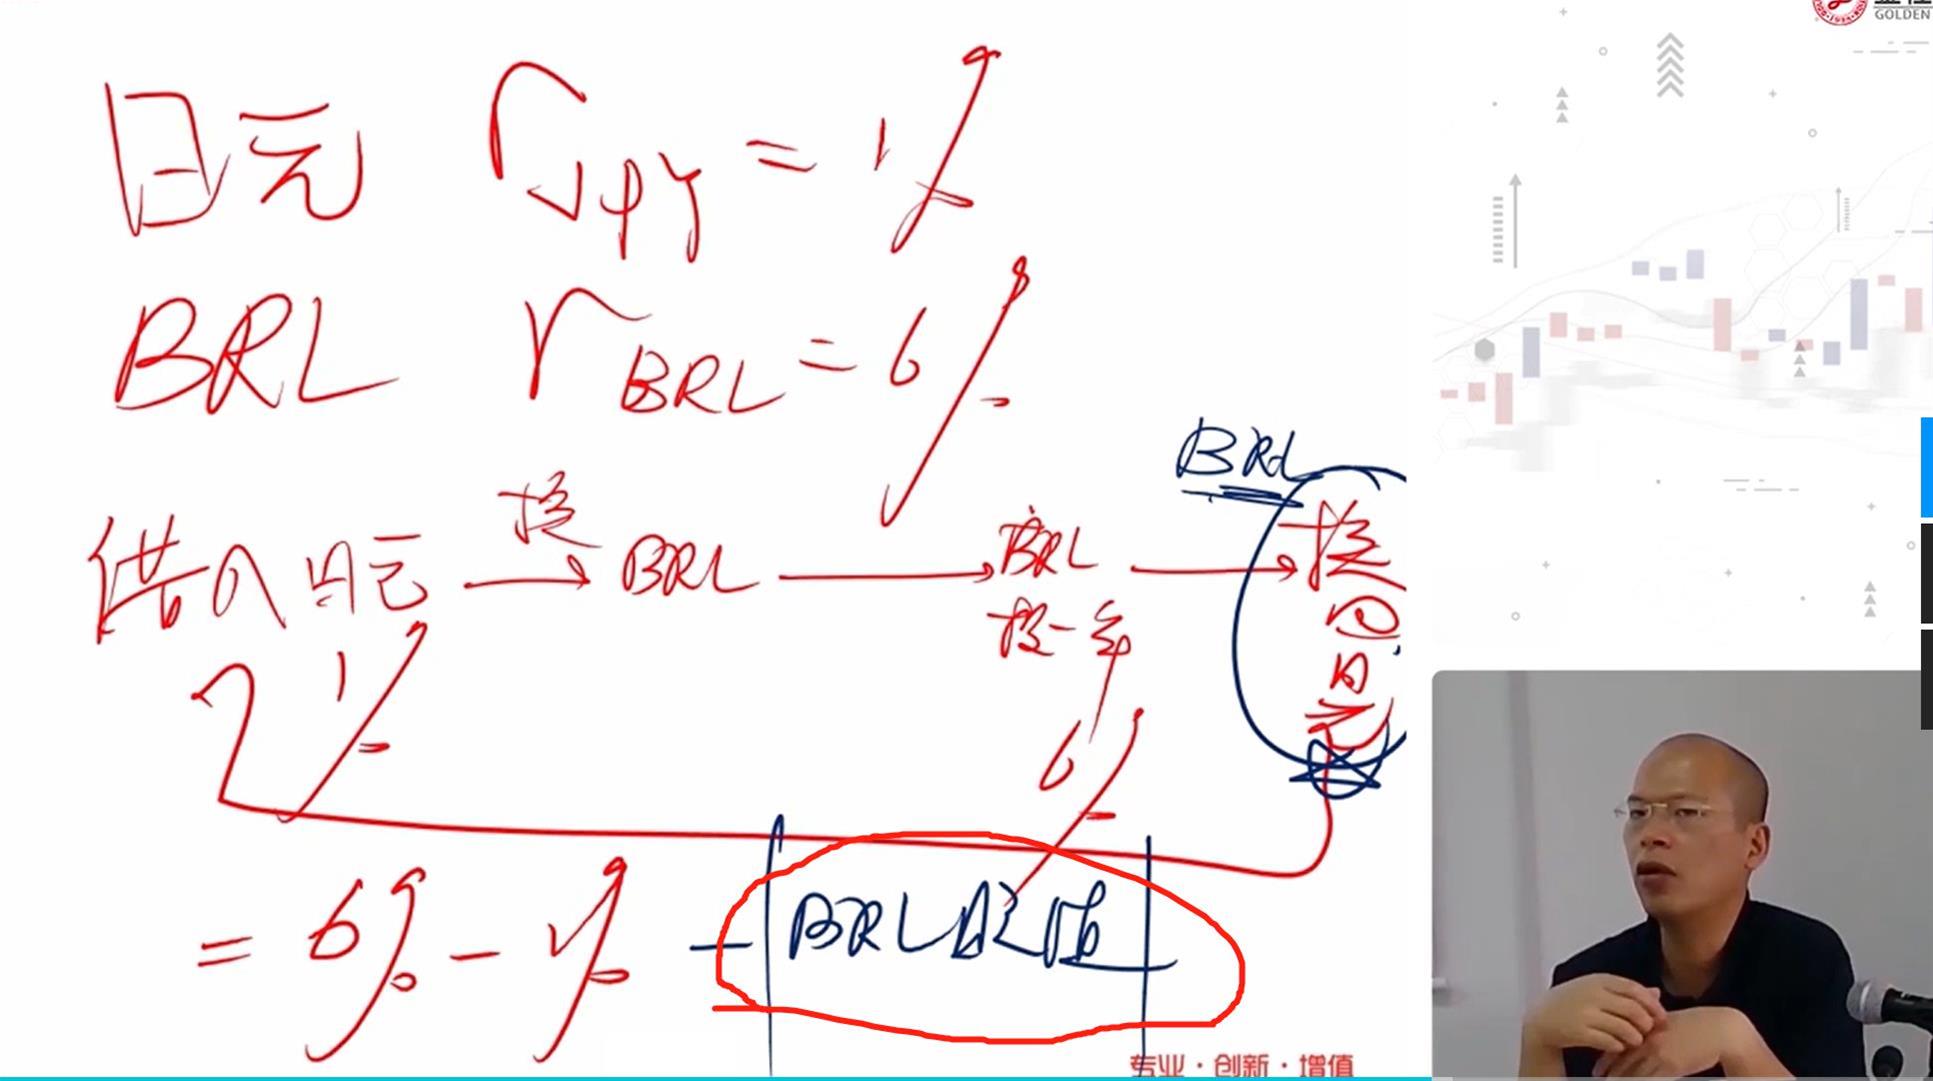 GOLDEN
日元 r JPY = 1%
BRL r BRL = 6%
BRL
借入日元 换 → BRL → BRL 投一年 → 换回日元
1% 6%
= 6% - 1% - |BRL贬值|
专业·创新·增值